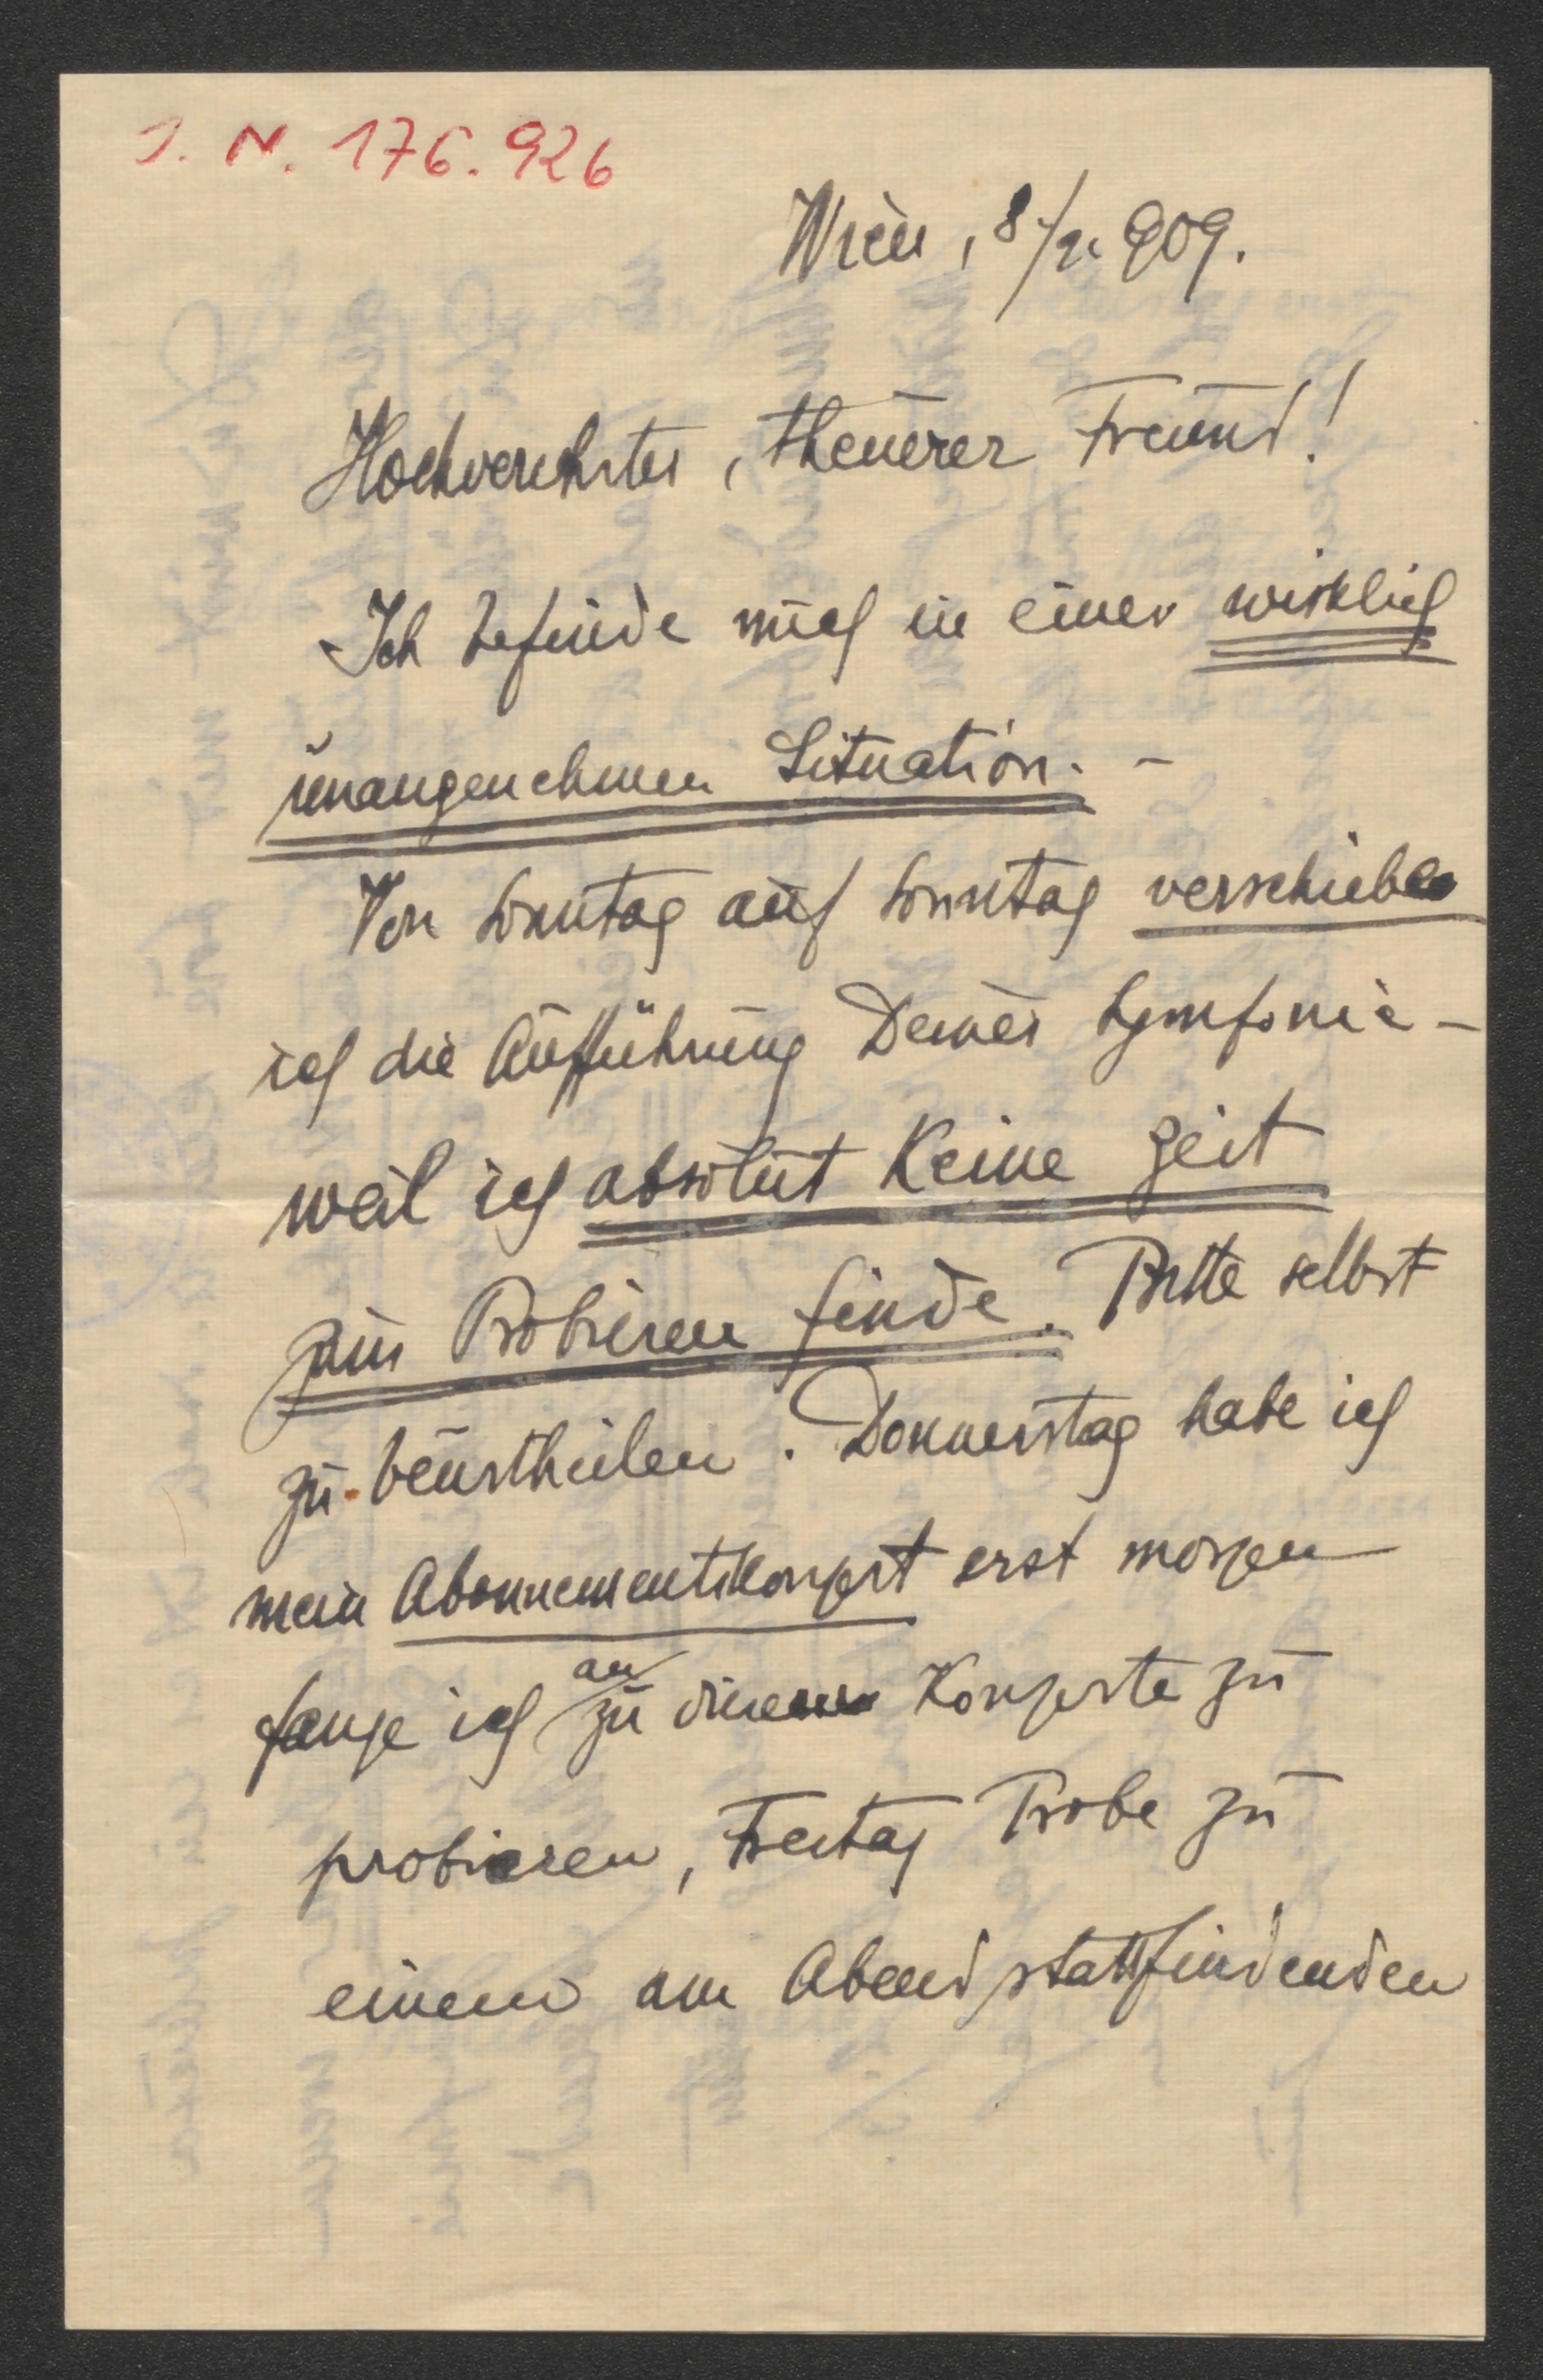 J. N. 176.926
Wien, 8/2. 909.
Hochverehrter, theuerer Freund!
Ich befinde mich in einer wirklich
unangenehmen Situation. -
Von Sonntag auf Sonntag verschiebe
ich die Aufführung Deiner Symfonie -
weil ich absolut keine Zeit
zum Probieren finde. Bitte selbst
zu beurtheilen. Donnerstag habe ich
mein Abonnementskonzert erst morgen
fange ich an zu diesem Konzerte zu
probieren, Freitag Probe zu
einem am Abend stattfindenden